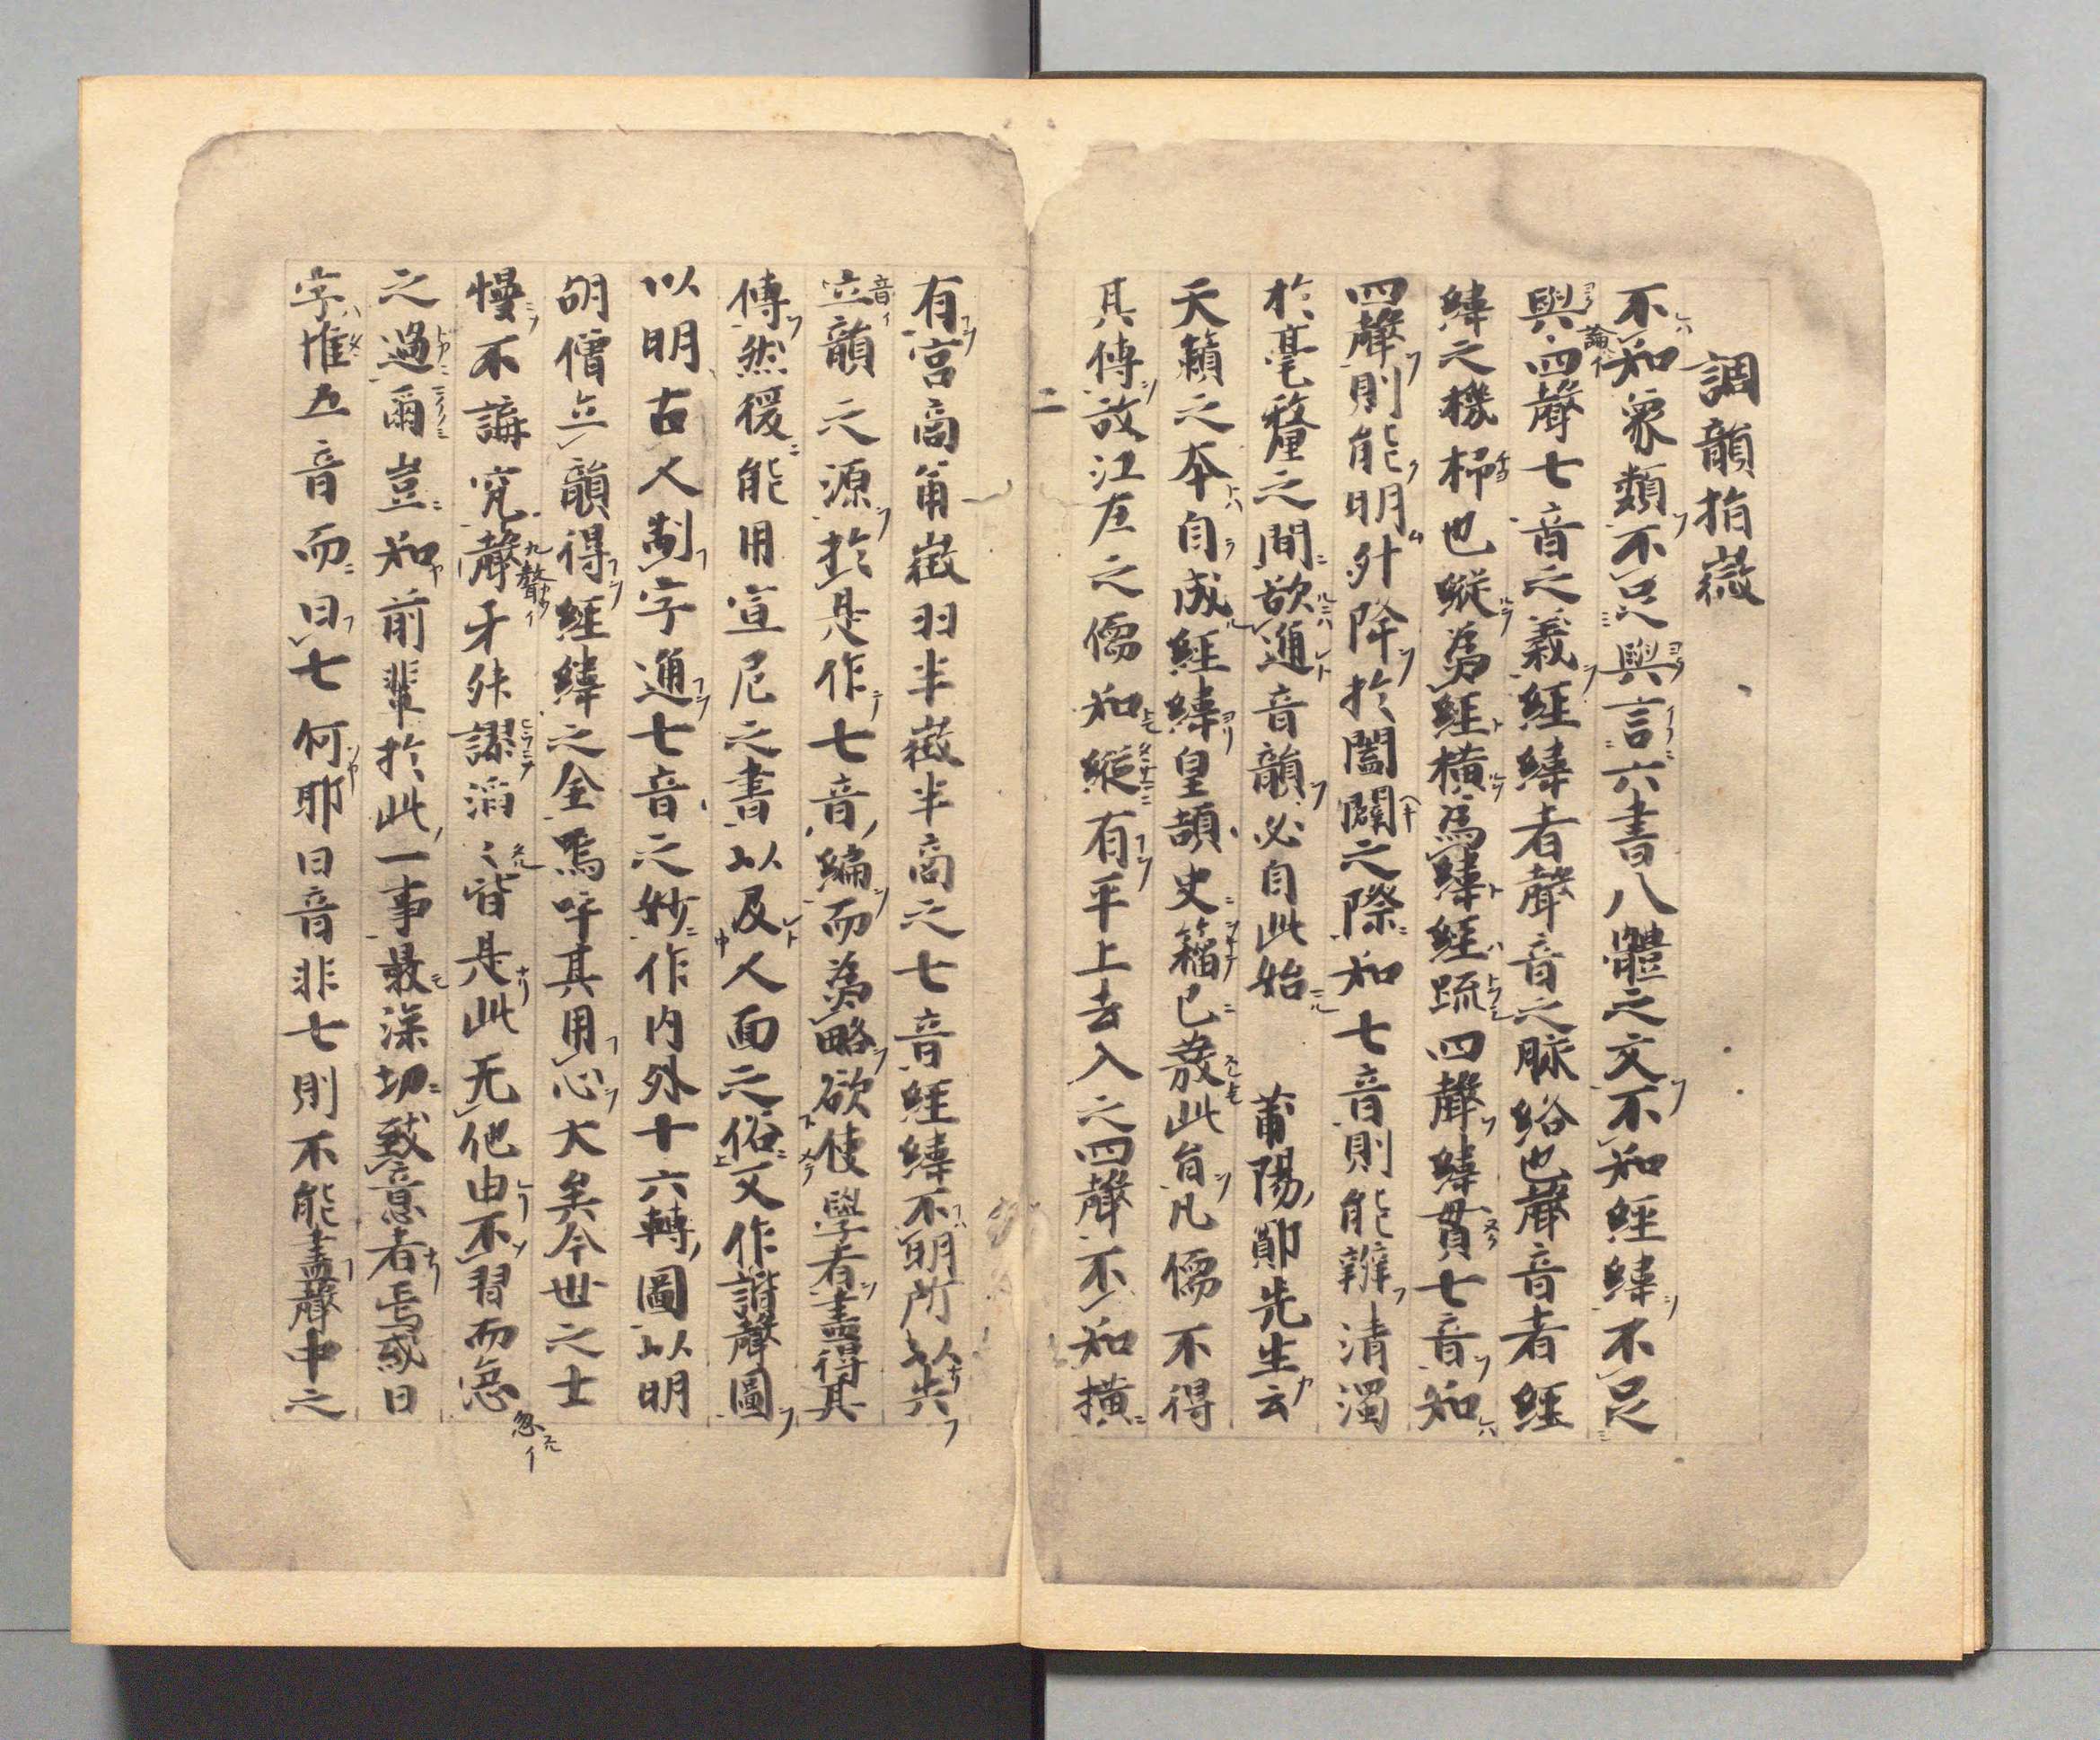 調韻指微
不知象類不足與言六書八體之文不知經緯不足
與四聲七音之義經緯者聲音之脉絡也聲音者經
緯之機杼也縱爲經横爲緯經疏四聲緯貫七音知
四聲則能明升降於闔闢之際知七音則能辨清濁
於毫釐之間欲通音韻必自此始 莆陽鄭先生云
天籟之本自成經緯皇頡史籀已發此旨凡儒不得
其傳故江左之儒知縱有平上去入之四聲不知横
二
有宮商角徵羽半徵半商之七音經緯不明所以失
立韻之源於是作七音編而為略欲使學者盡得其
傳然後能用宣尼之書以及人面之俗又作諧聲圖
以明古人制字通七音之妙作内外十六轉圖以明
胡僧立韻得經緯之全嗚呼其用心大矣今世之士
慢不講究聲牙舛謬滔〻皆是此无他由不習而怠
之過爾豈知前輩於此一事最深切致意者焉或曰
字惟五音而曰七何耶曰音非七則不能盡聲中之